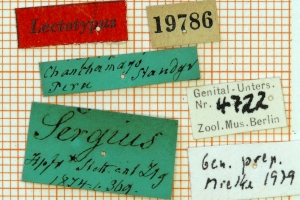 Lectotypus
19786
Chanchamayo
Peru Standgr
Genital-Unters.
Nr. 4722
Zool. Mus. Berlin
Sergius
Hpfr Stett ent Ztg
1874 p. 369.
Gen. prep.
Mielke 1979